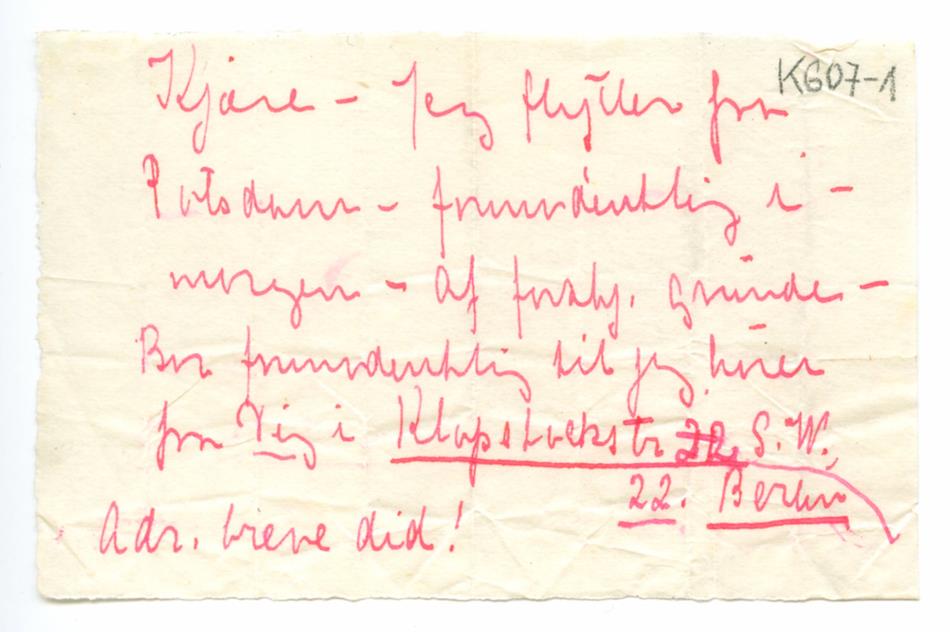 K607-1
Kjære – Jeg flytter fra
Potsdam – formodentlig i –
morgen – af forskj. grunde –
Bor formodentlig til jeg hører
fra Dig i Klopstockstr 22 S. W.
22. Berlin
Adr. breve did!